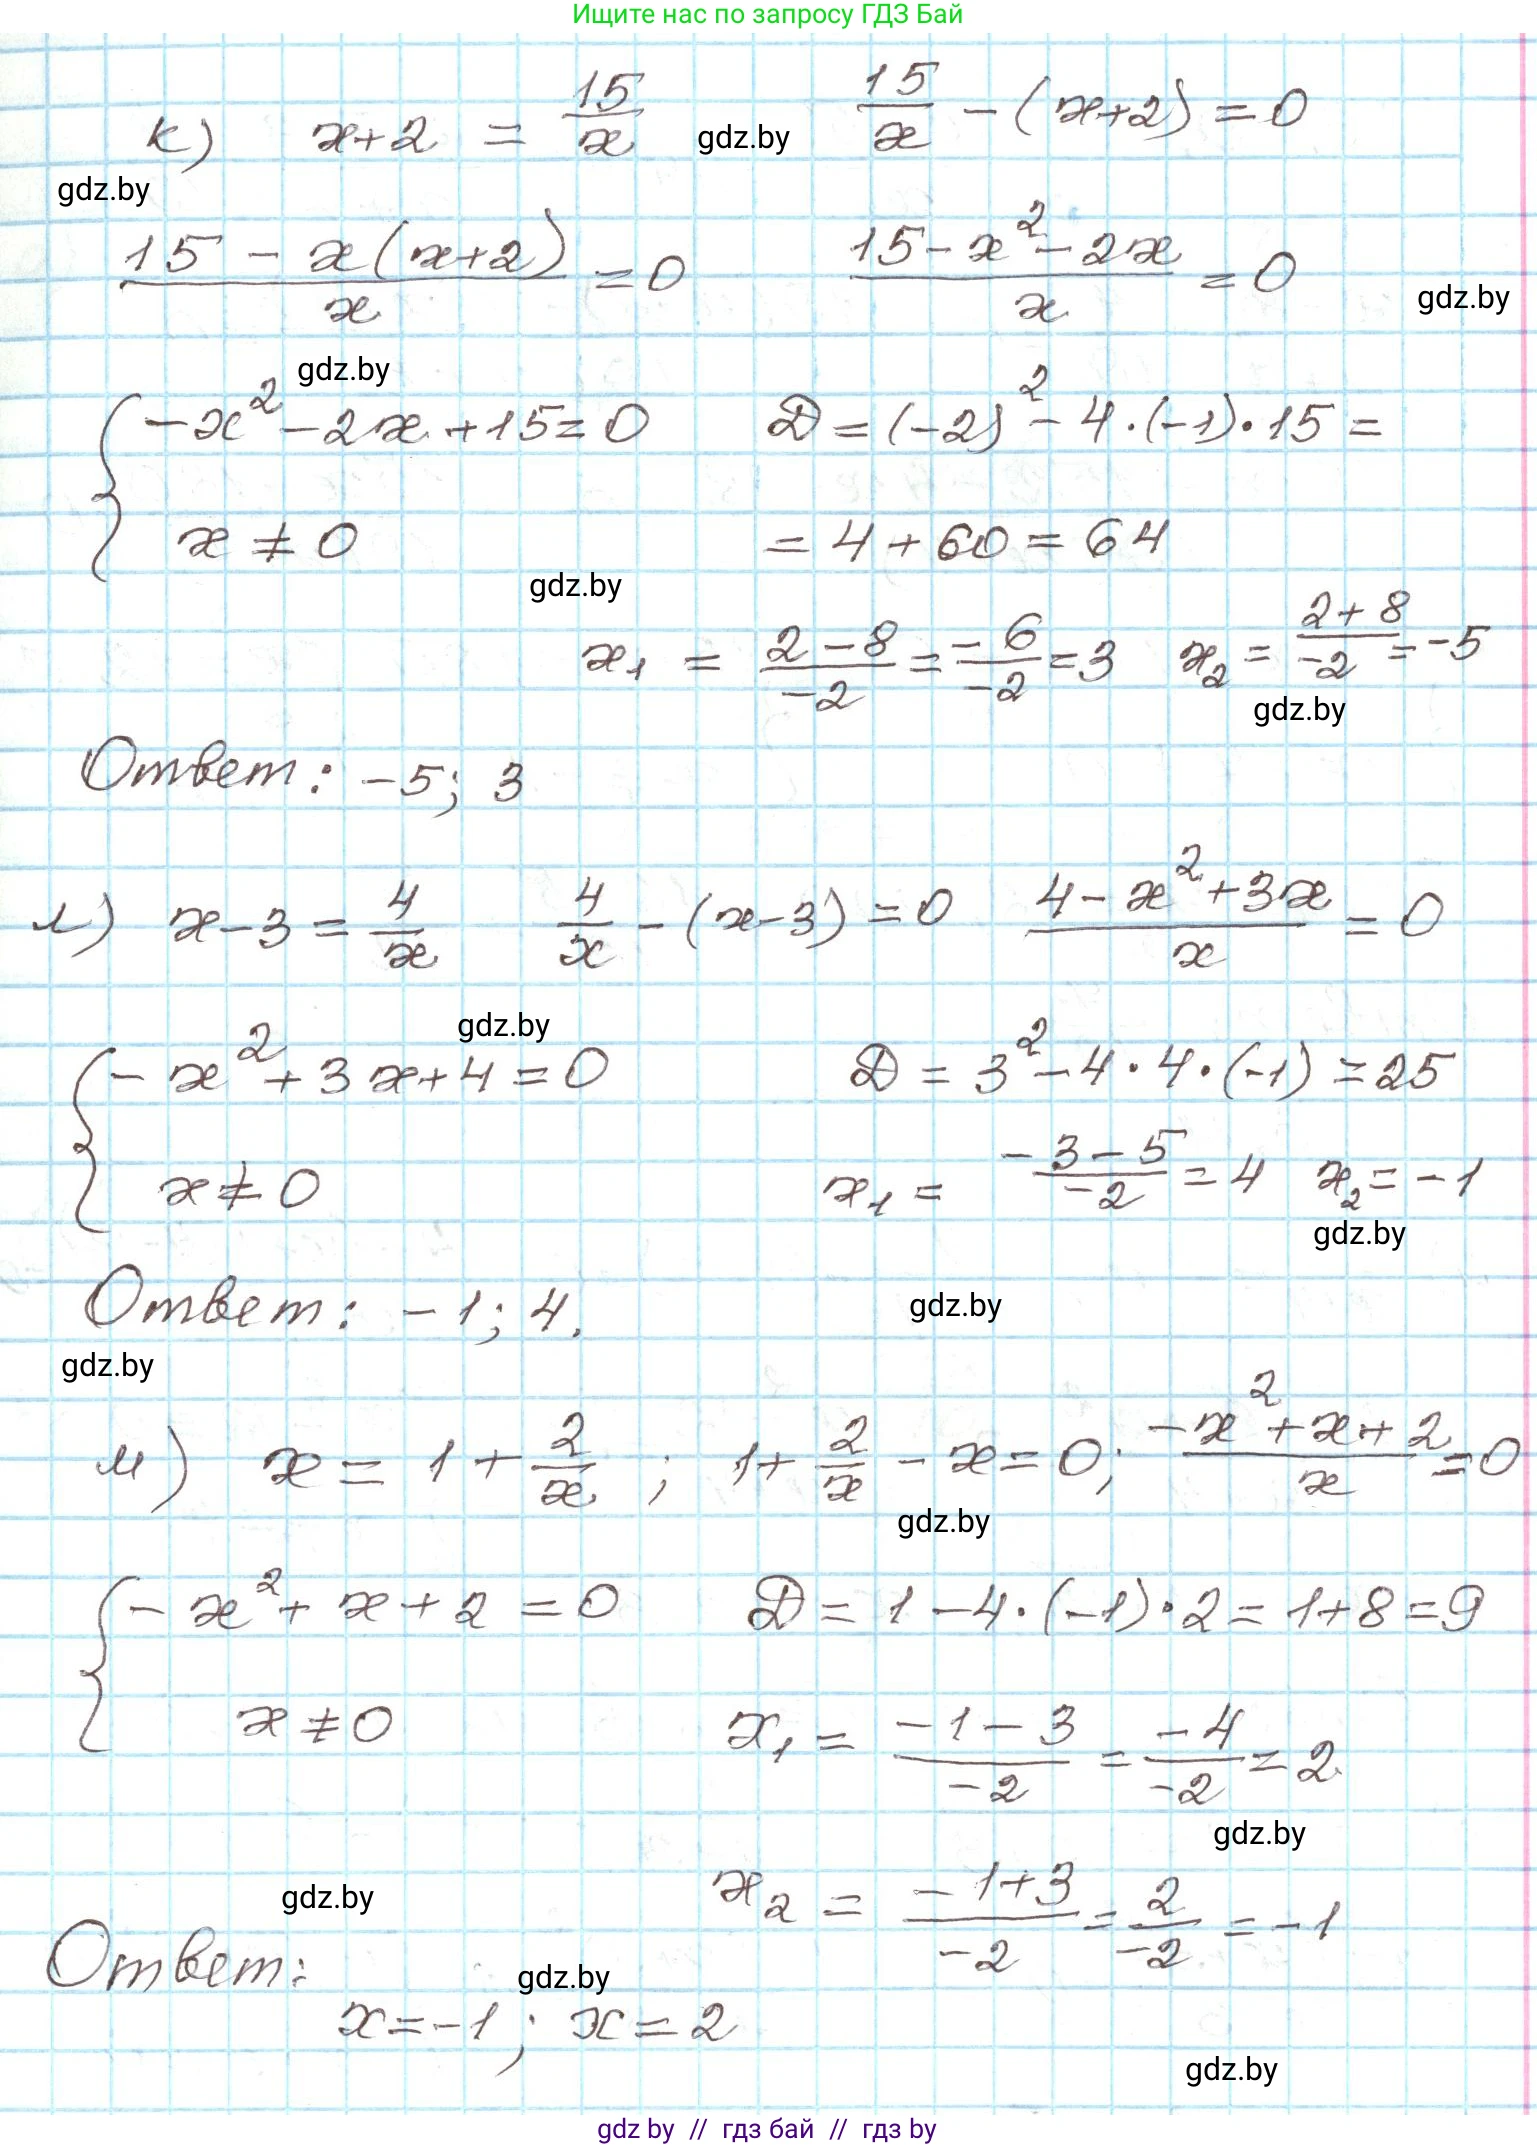 Ищите нас по запросу ГДЗ Бай
к) x+2 = 15/x gdz.by 15/x - (x+2) = 0
gdz.by
(15 - x(x+2))/x = 0 (15 - x² - 2x)/x = 0 gdz.by
gdz.by
{ -x² - 2x + 15 = 0 D = (-2)² - 4·(-1)·15 =
x ≠ 0 = 4 + 60 = 64
gdz.by
x₁ = (2-8)/-2 = -6/-2 = 3 x₂ = (2+8)/-2 = -5
gdz.by
Ответ: -5; 3
л) x-3 = 4/x 4/x - (x-3) = 0 (4 - x² + 3x)/x = 0
gdz.by
{ -x² + 3x + 4 = 0 D = 3² - 4·4·(-1) = 25
x ≠ 0 x₁ = (-3-5)/-2 = 4 x₂ = -1
gdz.by
Ответ: -1; 4. gdz.by
gdz.by
м) x = 1 + 2/x ; 1 + 2/x - x = 0; (-x² + x + 2)/x = 0
gdz.by
{ -x² + x + 2 = 0 D = 1 - 4·(-1)·2 = 1+8 = 9
x ≠ 0 x₁ = (-1-3)/-2 = -4/-2 = 2
gdz.by
gdz.by x₂ = (-1+3)/-2 = 2/-2 = -1
Ответ: gdz.by
x = -1 ; x = 2
gdz.by
gdz by // гдз бай // гдз by